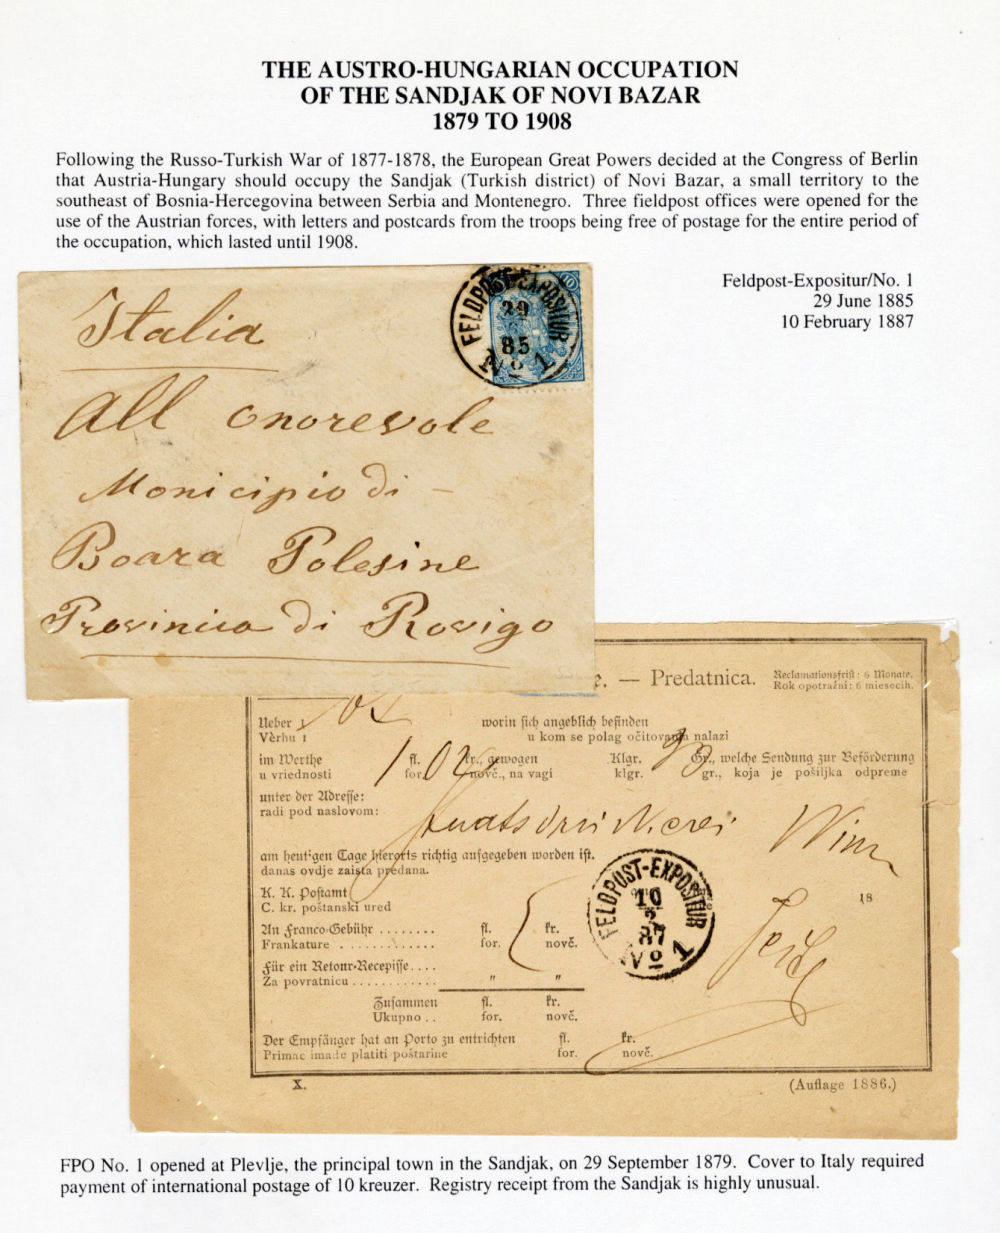 THE AUSTRO-HUNGARIAN OCCUPATION
OF THE SANDJAK OF NOVI BAZAR
1879 TO 1908
Following the Russo-Turkish War of 1877-1878, the European Great Powers decided at the Congress of Berlin
that Austria-Hungary should occupy the Sandjak (Turkish district) of Novi Bazar, a small territory to the
southeast of Bosnia-Hercegovina between Serbia and Montenegro. Three fieldpost offices were opened for the
use of the Austrian forces, with letters and postcards from the troops being free of postage for the entire period of
the occupation, which lasted until 1908.
Feldpost-Expositur/No. 1
29 June 1885
10 February 1887
FELDPOST-EXPOSITUR
29
85
No 1
10
Italia
All onorevole
Monicipio di -
Boara Polesine
Provinicia di Rovigo
e. — Predatnica.
Reclamationsfrist: 6 Monate.
Rok opotražni: 6 miesecih.
Ueber
Vèrhu 1
worin sich angeblich befinden
u kom se polag očitovanja nalazi
im Werthe fl. kr., gewogen Klgr. Gr., welche Sendung zur Beförderung
u vriednosti for. novč., na vagi klgr. gr., koja je pošiljka odpreme
unter der Adresse:
radi pod naslovom:
Staatsdruckerei Wien
am heutigen Tage hierorts richtig aufgegeben worden ist.
danas ovdje zaista predana.
K. K. Postamt
C. kr. poštanski ured
18
An Franco-Gebühr ........ fl. kr.
Frankature ............ for. novč.
Für ein Retour-Recepisse....
Za povratnicu ............ " "
Zusammen fl. kr.
Ukupno .. for. novč.
Der Empfänger hat an Porto zu entrichten fl. kr.
Primac imade platiti poštarine for. novč.
FELDPOST-EXPOSITUR
10
2
87
No 1
X.
(Auflage 1886.)
FPO No. 1 opened at Plevlje, the principal town in the Sandjak, on 29 September 1879. Cover to Italy required
payment of international postage of 10 kreuzer. Registry receipt from the Sandjak is highly unusual.